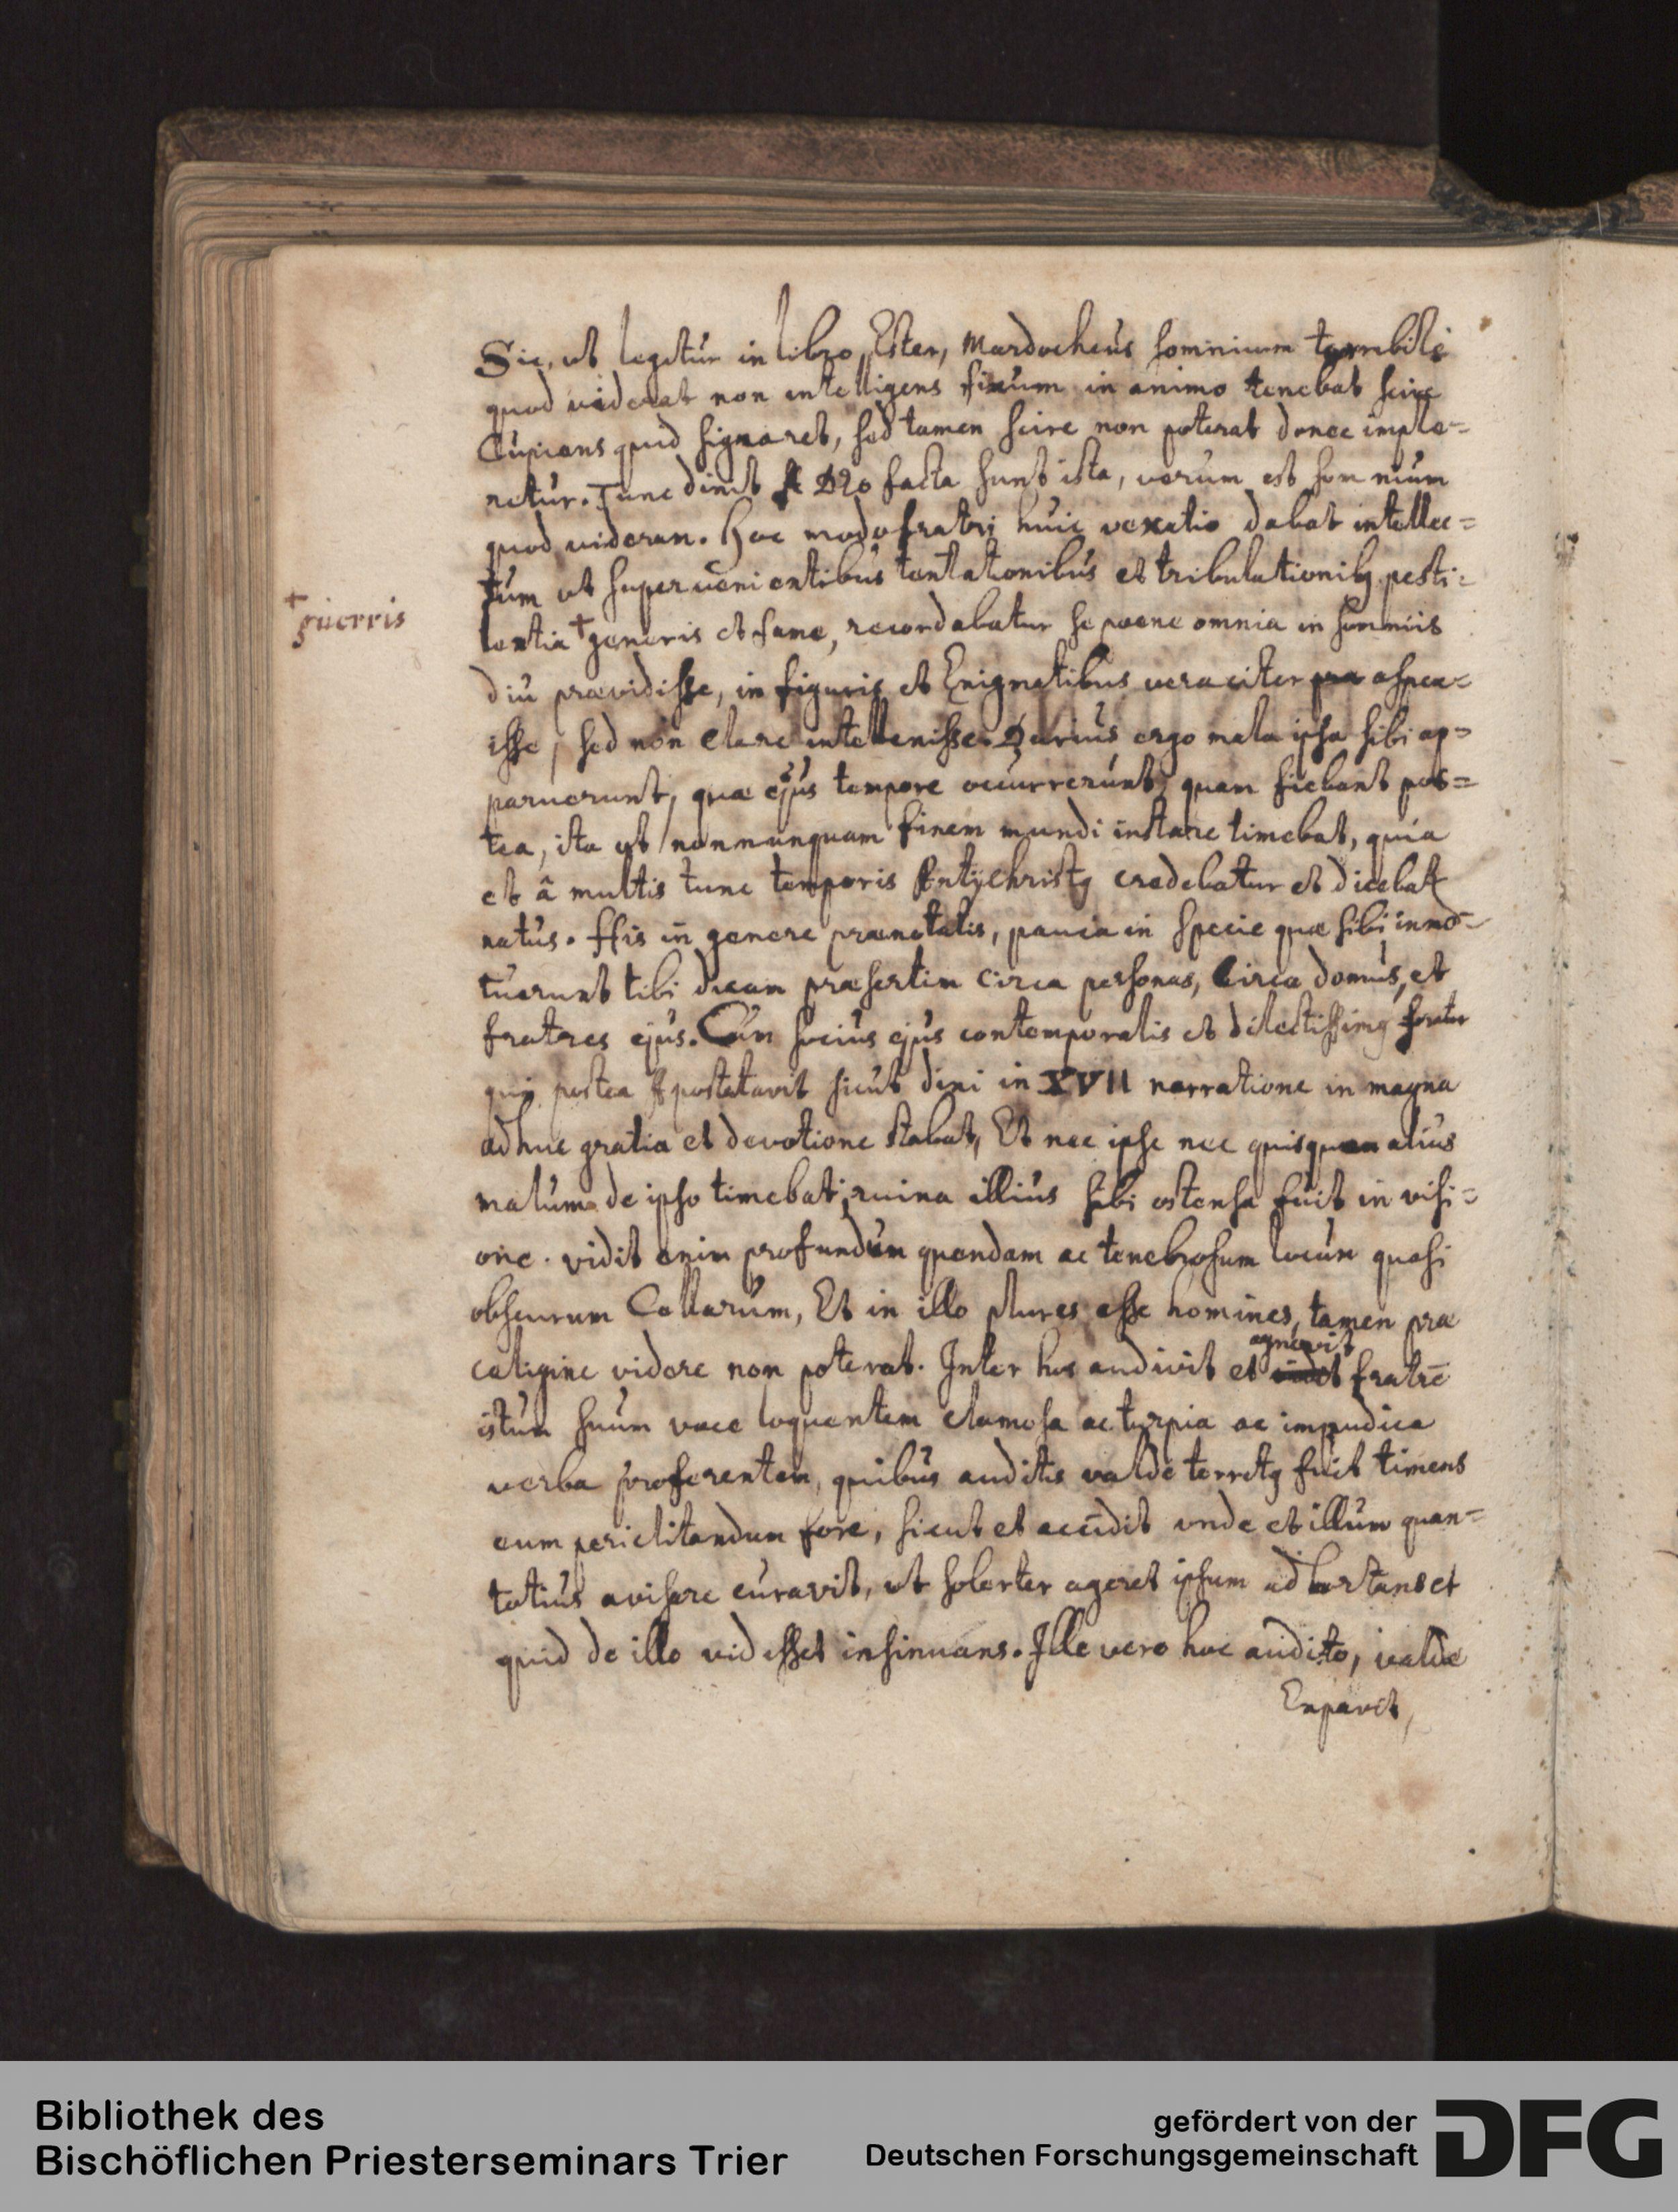 Sic, ut legitur in libro Ester, Mardocheus somnium terribile
quod viderat non intelligens fixum in animo tenebat scire
Cupiens quid signaret, sed tamen scire non poterat donec imple-
retur. Tunc dixit A Deo facta sunt ista, verum est somnium
quod videram. Hoc modo fratri huic vexatio dabat intellec=
tum ut supervenientibus tentationibus et tribulationibq pesti=
lentia + generis et fame, recordabatur se paene omnia in somniis
+
guerris
diu praevidisse, in figuris et Enigmatibus veraciter aspex=
isse, sed non clare intellexisse. Darius ergo mala ipsa sibi ap=
paruerunt, quae ejus tempore occurrerunt, quam fiebant pos=
tea, ita ut nonnunquam finem mundi instare timebat, quia
et â multis tunc temporis Antychristq credebatur et dicebat
natus. His in genere praenotatis, pauca in specie quae sibi inno=
tuerunt tibi dicam praesertim circa personas, circa domus, et
fratres ejus. Cum socius ejus contemporalis et dilectissimq frater
qui postea Apostatavit sicut dixi in XVII narratione in magna
adhuc gratia et devotione stabat, Et nec ipse nec quisquam alius
malum de ipso timebat; ruina illius sibi ostensa fuit in visi=
one. vidit enim profundum quendam ac tenebrosum locum quasi
obscurum Cellarium, Et in illo plures esse homines, tamen prae
caligine videre non poterat. Inter hos audivit et agnovit fratrē
istum suum voce loquentem clamosa ac turpia ac impudica
verba proferentem, quibus auditis valde territq fuit timens
eum periclitandum fore, sicut et accidit unde et illum quan=
totius avisare curavit, ut solerter ageret ipsum adhortans et
quid de illo vidisset insinuans. Ille vero hoc audito, valde
Expavit,
Bibliothek des
Bischöflichen Priesterseminars Trier
gefördert von der
Deutschen Forschungsgemeinschaft
DFG